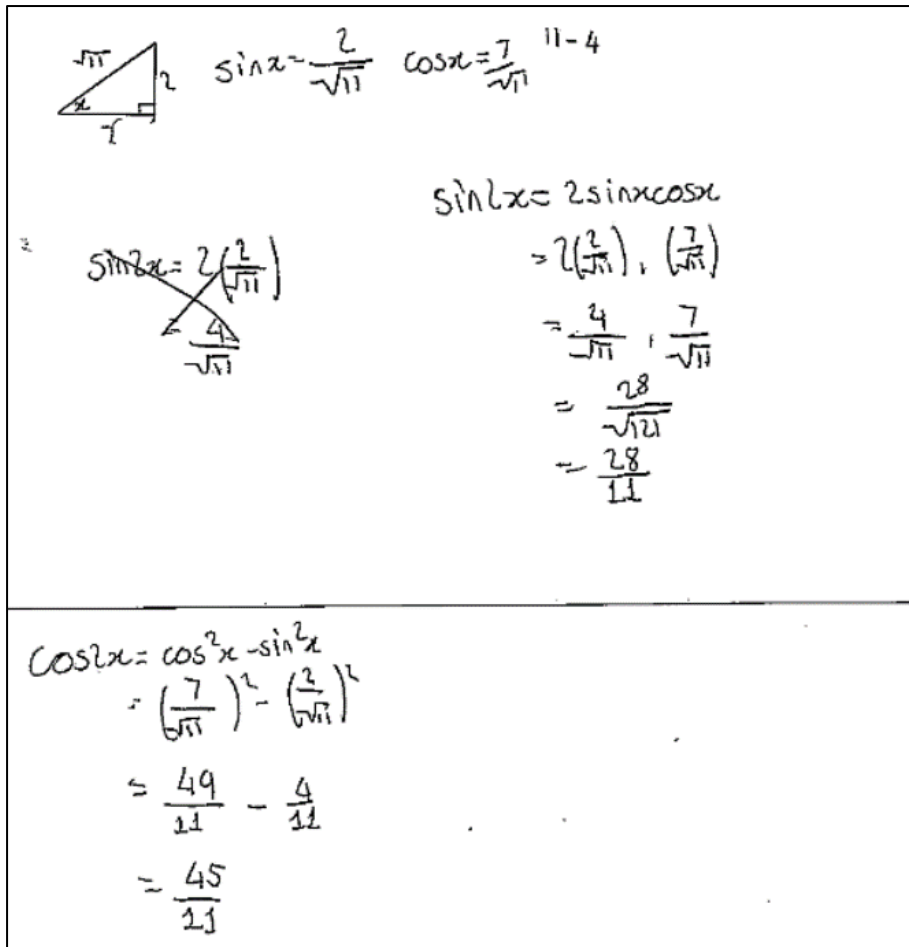 √11
2
x
7
sinx = 2/√11 cosx = 7/√11 11-4
sin2x = 2(2/√11)
= 4/√11
sin2x = 2sinxcosx
= 2(2/√11) . (7/√11)
= 4/√11 . 7/√11
= 28/√121
= 28/11
cos2x = cos²x - sin²x
= (7/√11)² - (2/√11)²
= 49/11 - 4/11
= 45/11